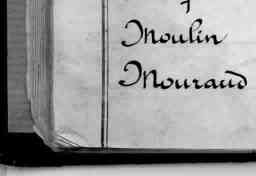 Moulin
Mouraud